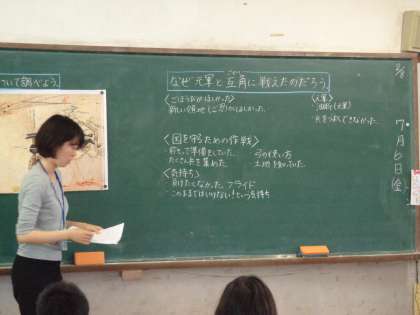 ついて調べよう。
なぜ元軍と互角に戦えたのだろう。
〈ごほうびがほしかった〉
新しい領地(ご恩)がほしかった。
〈元軍〉
火をつかってきなかった。
〈国を守るための作戦〉
前もって準備をしていた。
たくさん兵を集めた。
弓の使い方
〈気持ち〉
負けたくなかった プライド
このままではいけない!という気持ち
7月6日(金)